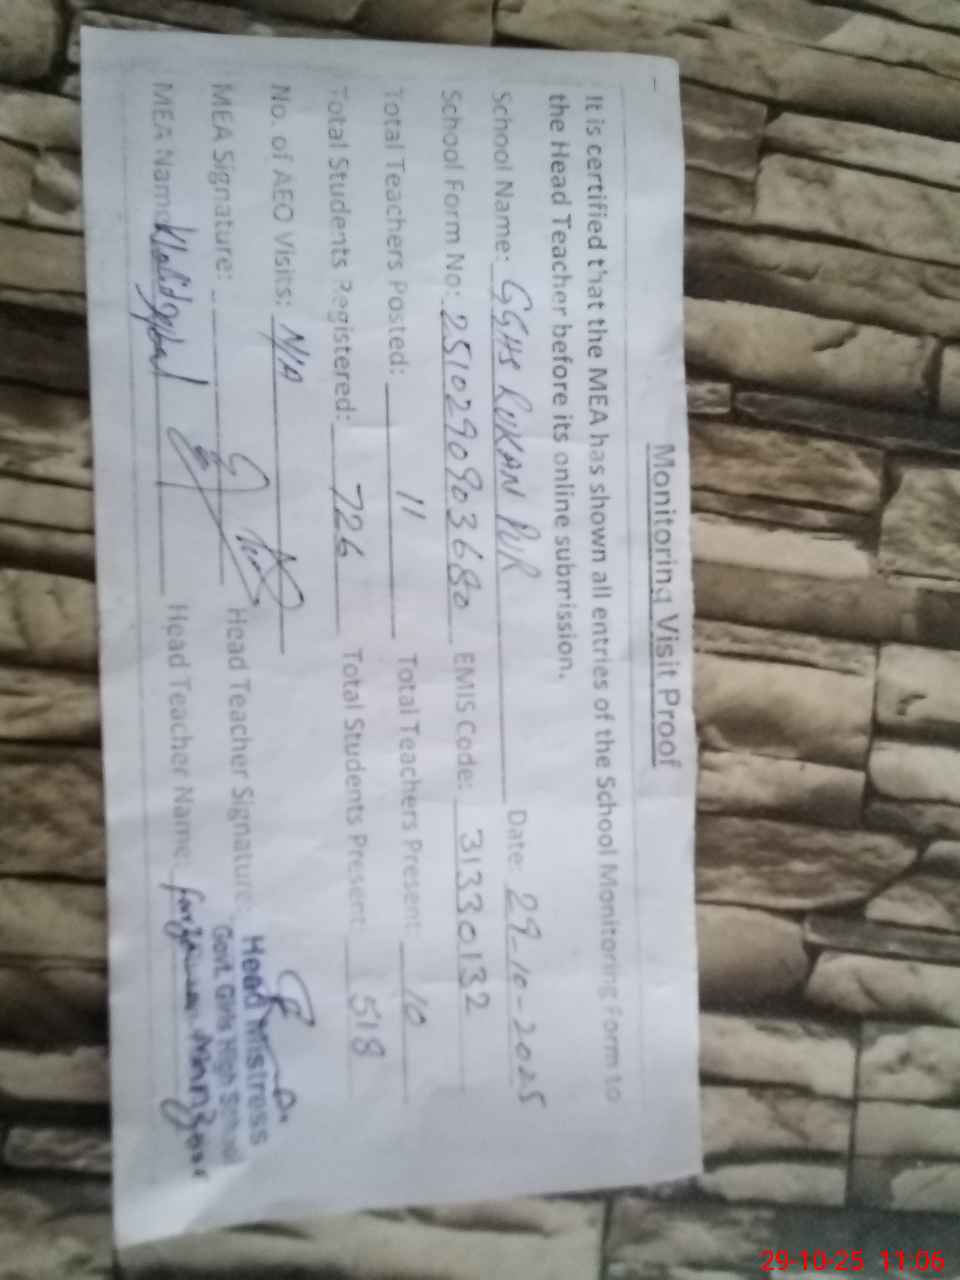 Monitoring Visit Proof
It is certified that the MEA has shown all entries of the School Monitoring Form to
the Head Teacher before its online submission.
School Name: GGHS RUKAN PUR Date: 29-10-2025
School Form No: 2510290903680 EMIS Code: 31330132
Total Teachers Posted: 11 Total Teachers Present: 10
Total Students Registered: 726 Total Students Present: 518
No. of AEO Visits: N/A
MEA Signature: Head Teacher Signature:
Head Mistress
Govt. Girls High School
MEA Name: Khalid Iqbal Head Teacher Name: Farzana Manzoor
29-10-25 11:06